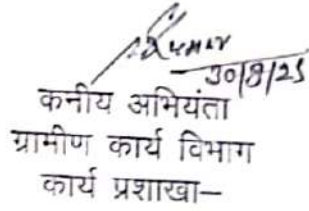 Kumar
30/8/25
कनीय अभियंता
ग्रामीण कार्य विभाग
कार्य प्रशाखा–